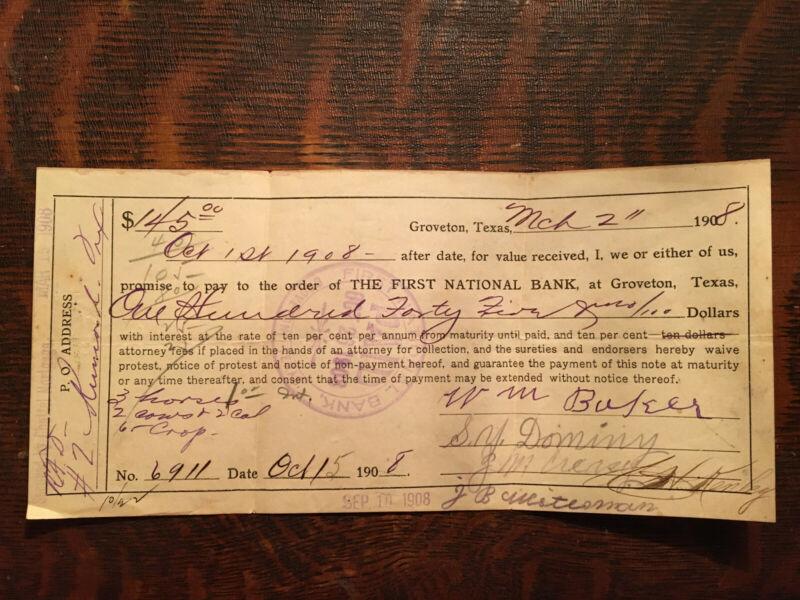 $145.00
Groveton, Texas, Mch 2" 1908.
Oct 1st 1908 - after date, for value received, I, we or either of us,
promise to pay to the order of THE FIRST NATIONAL BANK, at Groveton, Texas,
One Hundred Forty Five & no/100 Dollars
with interest at the rate of ten per cent per annum from maturity until paid, and ten per cent ten dollars
attorney fees if placed in the hands of an attorney for collection, and the sureties and endorsers hereby waive
protest, notice of protest and notice of non-payment hereof, and guarantee the payment of this note at maturity
or any time thereafter, and consent that the time of payment may be extended without notice thereof.
3 horses
2 cows & 2 Cal
6- Crop-
W M Baker
S. Y. Dominy
J M
J B
No. 6911 Date Oct 15 1908.
SEP 10 1908
P. O. ADDRESS
#2
10/22
FIRST
BANK